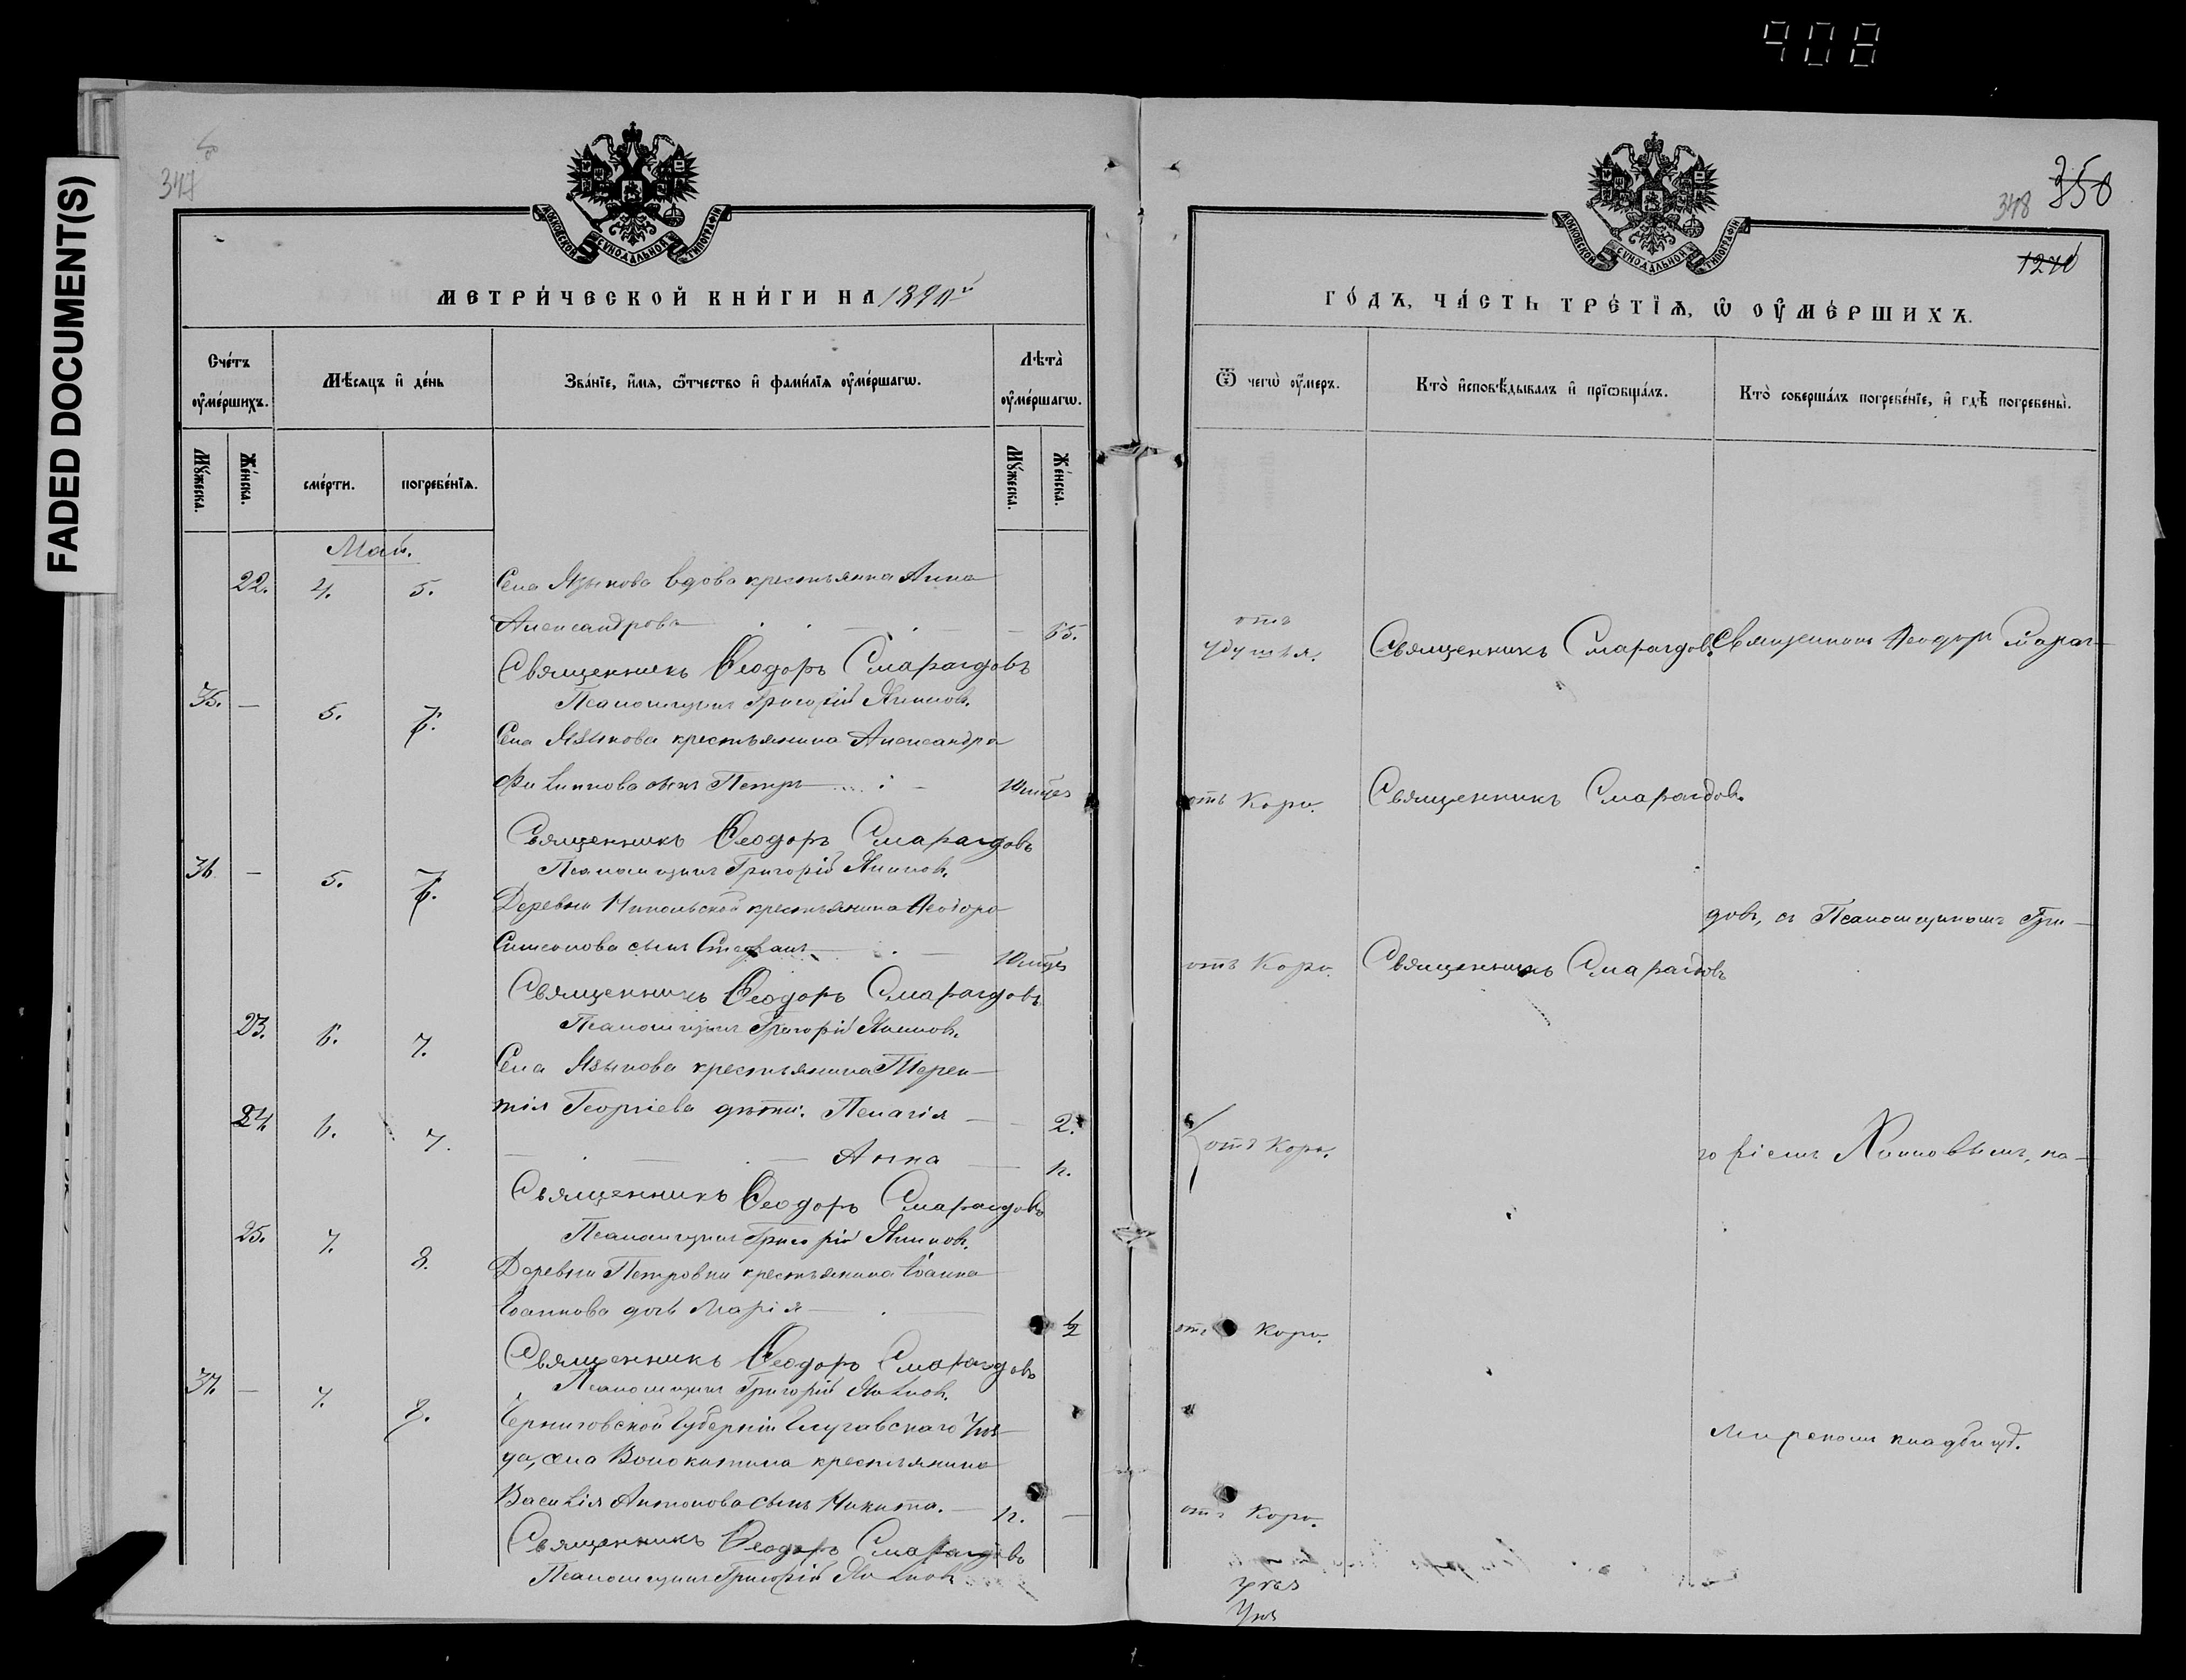 408
FADED DOCUMENT(S)
347
МОСКОВСКОЙ СѴНОДАЛЬНОЙ ТИПОГРАФІИ
МЕТРИ́ЧЕСКОЙ КНИ́ГИ НА 1890й
Сче́тъ ᲂу҆ме́ршихъ.
Мѣ́сяцъ и҆ де́нь
Зва́нїе, и҆́мѧ, ѻ҆́тчество и҆ фами́лїѧ ᲂу҆ме́ршагѡ.
Лѣта̀ ᲂу҆ме́ршагѡ.
Мꙋ́жеска.
Же́нска.
сме́рти.
погребе́нїѧ.
Мꙋ́жеска.
Же́нска.
Май.
22. 4. 5. Села Языкова вдова крестьянка Анна
Александрова 65.
Священникъ Ѳеодоръ Смарагдовъ
Псаломщикъ Григорій
35. — 5. 7.
Села Языкова крестьянина Александра
Филиппова сынъ Петръ 10 мцев
Священникъ Ѳеодоръ Смарагдовъ
Псаломщикъ Григорій
36 — 5. 7.
Деревни Никольской крестьянина Ѳеодора
Симеонова сынъ Стефанъ 10 мцев
Священникъ Ѳеодоръ Смарагдовъ
Псаломщикъ Григорій
23. 6. 7.
Села Языкова крестьянина Терен-
тія Георгіева дѣти: Пелагія 2.
24. 6. 7.
Анна н.
Священникъ Ѳеодоръ Смарагдовъ
Псаломщикъ Григорій
25. 7. 8.
Деревни Петровки крестьянина Іоанна
Іоаннова дочь Марія 1/2
Священникъ Ѳеодоръ Смарагдовъ
Псаломщикъ Григорій
37. — 7. 8.
Черниговской Губерніи Уѣз-
да, села крестьянина
Василія Антонова сынъ Никита. — н. —
Священникъ Ѳеодоръ Смарагдовъ
Псаломщикъ Григорій
348 350
1210
МОСКОВСКОЙ СѴНОДАЛЬНОЙ ТИПОГРАФІИ
ГО́ДЪ, ЧА́СТЬ ТРЕ́ТЇѦ, Ѡ҆ ОУ҆МЕ́РШИХЪ.
Ѿ чегѡ̀ ᲂу҆́меръ.
Кто̀ и҆сповѣ́дывалъ и҆ прїѡбща́лъ.
Кто̀ соверша́лъ погребе́нїе, и҆ гдѣ̀ погребены̀.
отъ
удушья.
Священникъ Смарагдовъ
Священникъ Ѳеодоръ Смараг-
отъ Кори.
Священникъ Смарагдовъ
довъ, съ Псаломщикомъ Гри-
отъ Кори.
Священникъ Смарагдовъ
отъ Кори.
горіемъ на
отъ Кори.
Мирскомъ кладбищѣ.
отъ Кори.
Уѣз